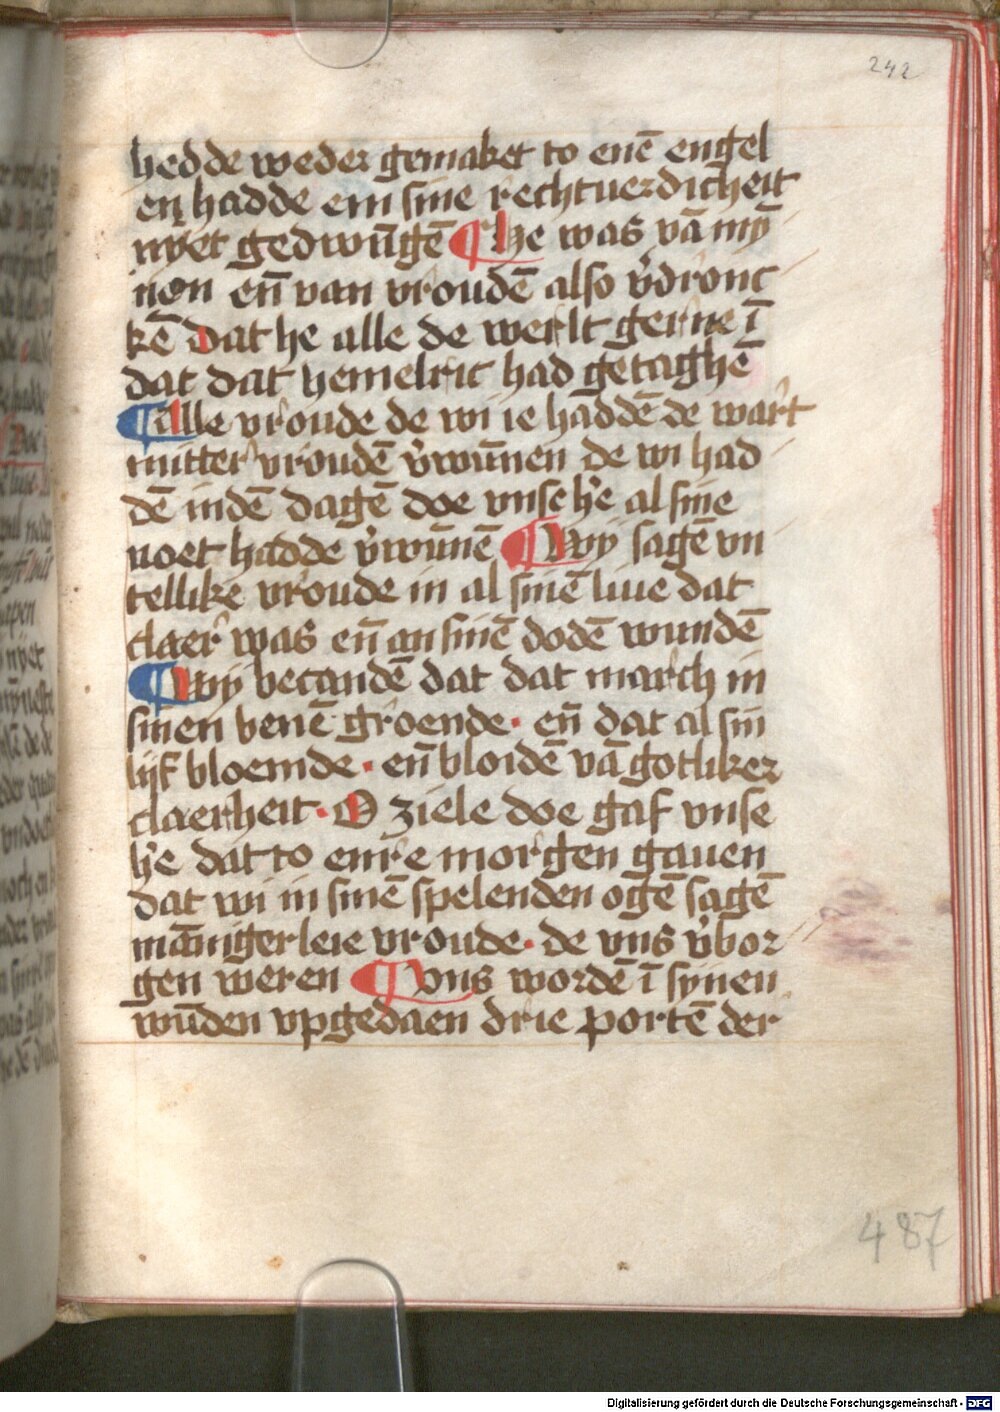 242
hedde weder gemaket to enē engel
en hadde em sine rechtuerdicheit
nyet gedwūgē ¶ he was vā my̅
nen eñ van vroudē also v̄dronc
kē dat he alle de werlt gerne ī
dat dat hemelric had getaghē
¶ Alle vroude de wi ie haddē de wart
mitter vroudē v̄wūnen de wi had
dē indē dagē doe vnse h̄e al sine
noet hadde v̄wūnē ¶ Wy sagē vn
tellike vroude in al sinē liue dat
claer was eñ an sinē dodē wundē
¶ Wy becandē dat dat march in
sinen benē groende · eñ dat al sin
lijf bloemde · eñ bloidē vā gotliker
claerheit · O ziele doe gaf vnse
h̄e dat to enre morgen gauen
dat wi in sinē spelenden ogē sagē
mānigerleie vroude · de vns v̄bor
gen weren ¶ Vns wordē ī synen
wūden vpgedaen drie portē der
487
Digitalisierung gefördert durch die Deutsche Forschungsgemeinschaft - DFG